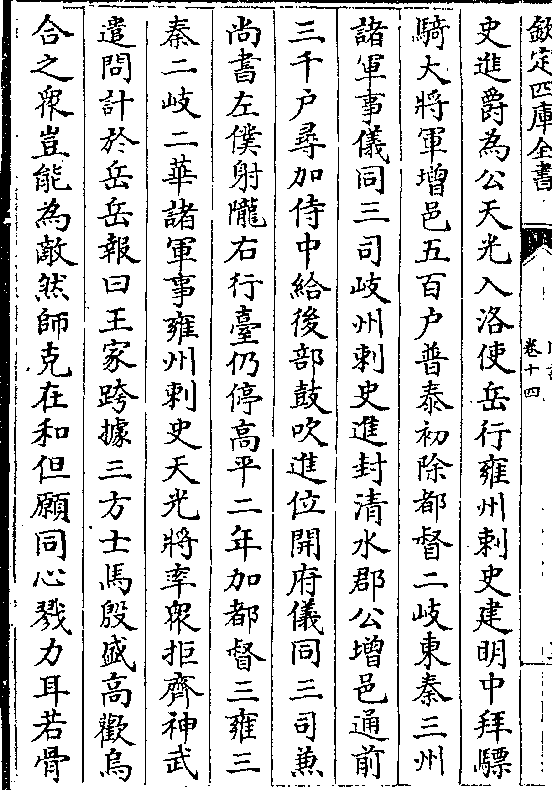 欽定四庫全書
卷十四
史進爵為公天光入洛使岳行雍州刺史建明中拜驃
騎大將軍增邑五百户普泰初除都督二岐東秦三州
諸軍事儀同三司岐州刺史進封清水郡公增邑通前
三千户尋加侍中給後部鼓吹進位開府儀同三司兼
尚書左僕射隴右行臺仍停高平二年加都督三雍三
秦二岐二華諸軍事雍州刺史天光將率衆拒齊神武
遣問計於岳岳報曰王家跨據三方士馬殷盛高歡烏
合之衆豈能為敵然師克在和但願同心戮力耳若骨